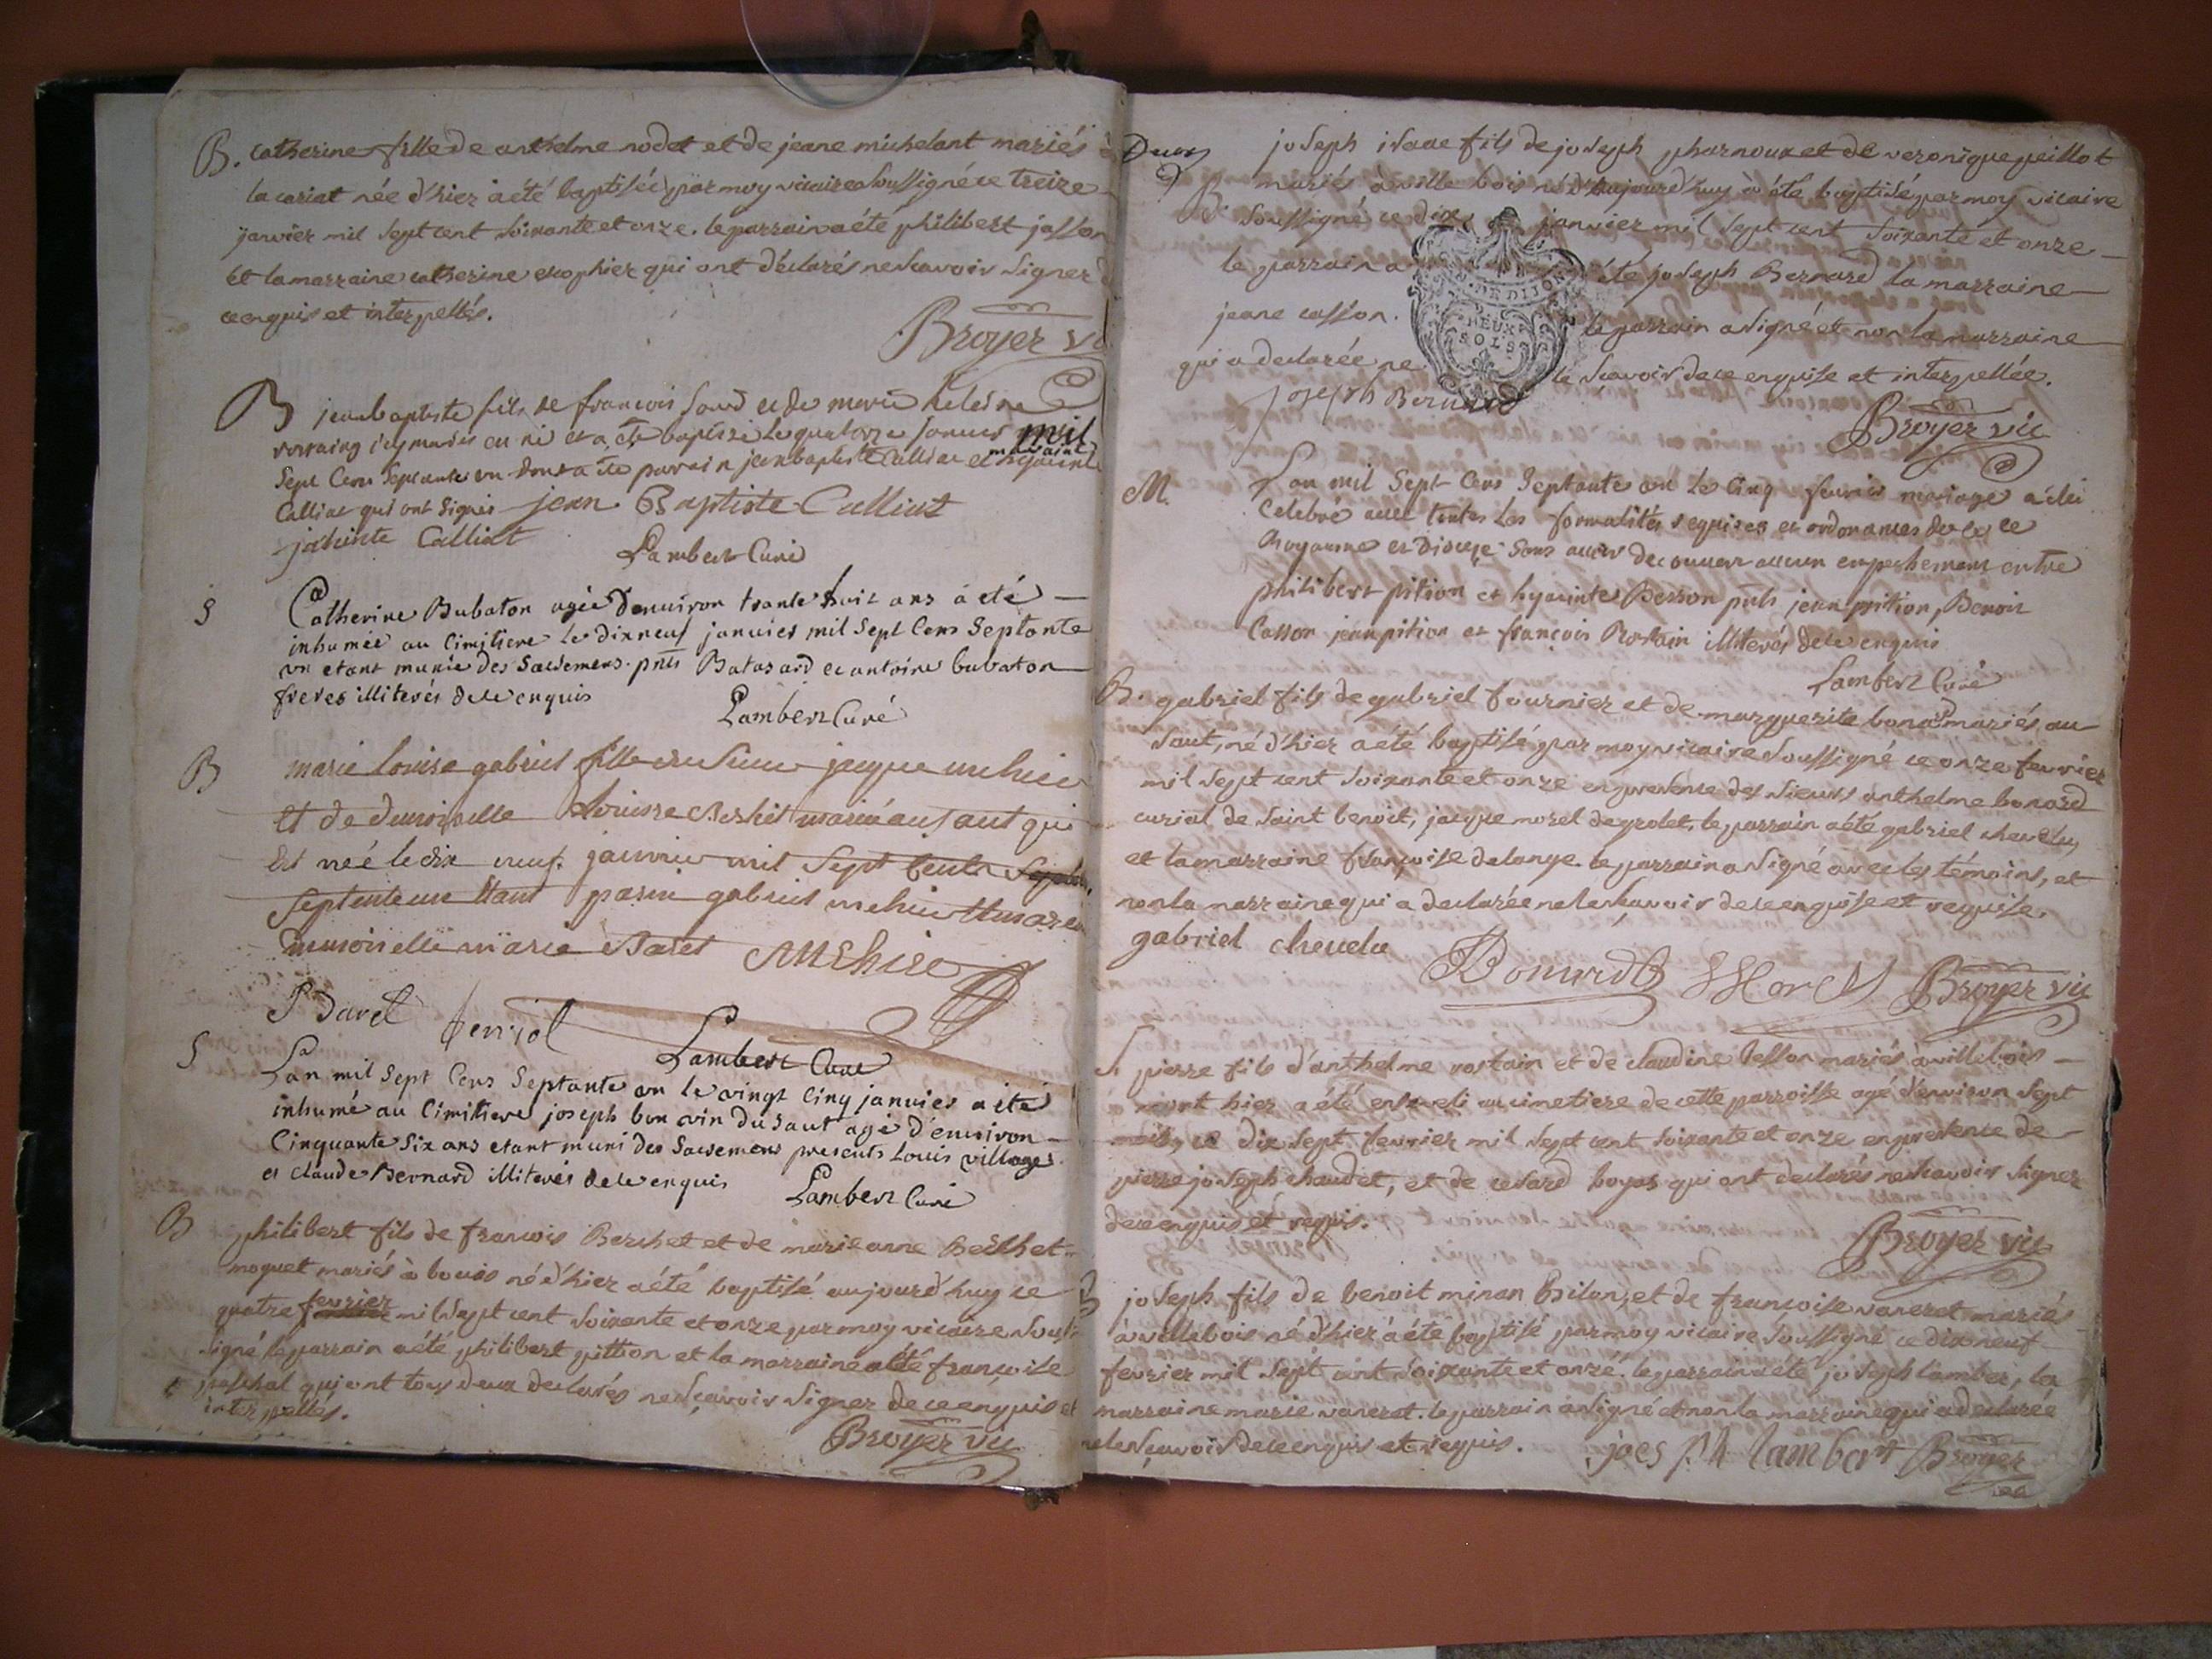 B. catherine fille de anthelme nodet et de jeane michelant mariés à
la cariat née d'hier a été baptisée par moy vicaire soussigné ce treize
janvier mil sept cent soixante et onze. le parrain a été philibert jasson
et la marraine catherine escophier qui ont déclarés ne scavoir signer
ce enquis et interpellés.
Broyer vi
B jeanbaptiste fils de francois et de marie helesne
icy mariés en né et a été baptisé le quatorze janvier mil
sept cens septante un dont a été parrain jeanbaptiste Calliat et marraine hyacinte
Calliat qui ont signés jean Baptiste Calliat
jahinte Calliat
Lambert Curé
S Catherine Bubaton agée d'environ trante huit ans a été
inhumée au cimitiere le dixneuf janvier mil sept cens septante
un etant munie des sacremens. pnts Batasard et antoine bubaton
freres illiterés de ce enquis
Lambert Curé
B marie louise gabriel fille du sieur jacque
et de demoiselle Louisse mariés au saut qui
est née le dix neuf janvier mil sept cents
septente un etant parin gabriel
demoiselle marie Baret
Baret
Lambert Curé
S Lan mil sept cens septante un le vingt cinq janvier a été
inhumé au cimitiere joseph bon vin du saut agé d'environ
cinquante six ans etant muni des sacremens presents Louis village
et claude Bernard illiterés de ce enquis Lambert Curé
B philibert fils de francois Berthet et de marie anne Berthet
moquet mariés à bouis né d'hier a été baptisé aujourd'huy ce
quatre fevrier mil sept cent soixante et onze par moy vicaire sous
signé le parrain a été philibert pittion et la marraine a été françoise
paschal qui ont tous deux declarés ne sçavoir signer de ce enquis et
interpellés.
Broyer vic
Deux joseph isaac fils de joseph pharnoux et de veronique peillot
B. mariés à ville bois né d'aujourd'huy a été baptisé par moy vicaire
soussigné ce dix janvier mil sept cent soixante et onze
le parrain a été joseph Bernard la marraine
DE DIJON
DEUX
SOLS
jeane casson. le parrain a signé et non la marraine
qui a declarée ne le sçavoir de ce enquise et interpellée.
joseph Bernard
Broyer vic
M. Lan mil sept cens septante un le cinq fevrier mariage a été
celebré avec toutes les formalités requises et ordonances de ce
Royaume et Diocese sans avoir decouvert aucun empechement entre
philibert pition et hyacinte Besson pnts jean pition, Benoit
Casson jean pition et françois Rostain illiterés de ce enquis
Lambert Curé
B. gabriel fils de gabriel fournier et de marguerite bonard mariés au
saut, né d'hier a été baptisé par moy vicaire soussigné ce onze fevrier
mil sept cent soixante et onze en presence des sieurs anthelme bonard
curial de saint benoit, jacque morel de grolet, le parrain a été gabriel chevelu,
et la marraine françoise delange. le parrain a signé avec les témoins, et
non la marraine qui a declarée ne le sçavoir de ce enquise et requise.
gabriel chevelu
Bonard Morel Broyer vic
S. pierre fils d'anthelme rostain et de claudine tesson mariés à villebois
mort hier a été enseveli au cimetiere de cette parroisse agé d'environ sept
mois, ce dix sept fevrier mil sept cent soixante et onze en presence de
pierre joseph chaudet, et de cesard boyas qui ont declarés ne scavoir signer
de ce enquis et requis.
Broyer vic
B joseph fils de benoit minan Bilon, et de francoise vaneret mariés
à villebois né d'hier a été baptisé par moy vicaire soussigné ce dixneuf
fevrier mil sept cent soixante et onze. le parrain a été joseph lamber, la
marraine marie vaneret. le parrain a signé et non la marraine qui a declarée
ne le sçavoir de ce enquis et requis. joesph lambert Broyer